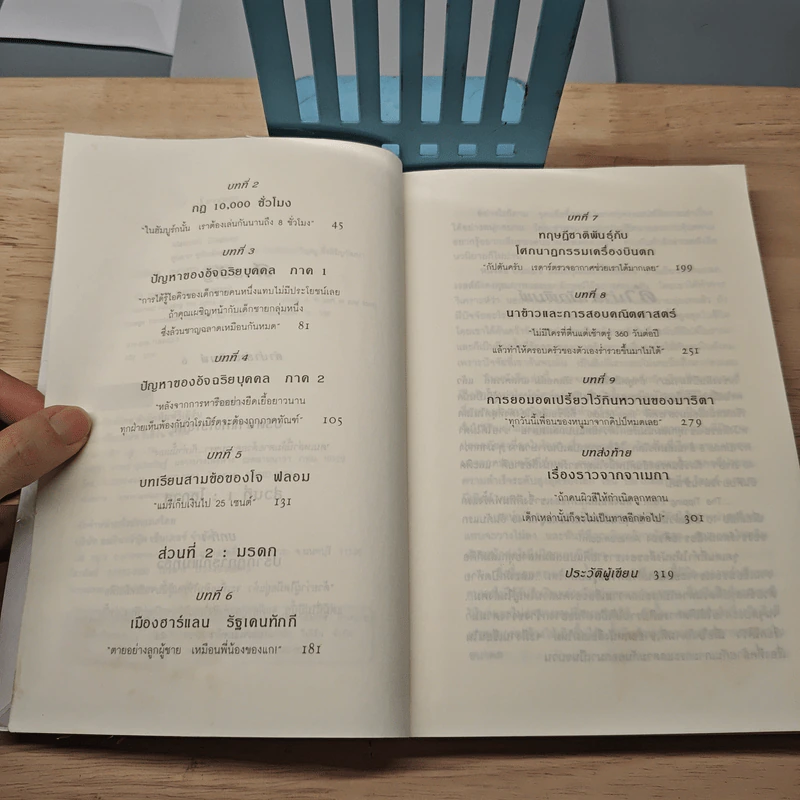 บทที่ 2
กฎ 10,000 ชั่วโมง
"ในฮัมบูร์กนั้น เราต้องเล่นกันนานถึง 8 ชั่วโมง" 45
บทที่ 3
ปัญหาของอัจฉริยบุคคล ภาค 1
"การได้รู้ไอคิวของเด็กชายคนหนึ่งแทบไม่มีประโยชน์เลย
ถ้าคุณเผชิญหน้ากับเด็กชายกลุ่มหนึ่ง
ซึ่งล้วนชาญฉลาดเหมือนกันหมด" 81
บทที่ 4
ปัญหาของอัจฉริยบุคคล ภาค 2
"หลังจากการหารืออย่างยืดเยื้อยาวนาน
ทุกฝ่ายเห็นพ้องกันว่าโรเบิร์ตจะต้องถูกภาคทัณฑ์" 105
บทที่ 5
บทเรียนสามข้อของโจ ฟลอม
"แมรี่เก็บเงินไป 25 เซนต์" 131
ส่วนที่ 2 : มรดก
บทที่ 6
เมืองฮาร์แลน รัฐเคนทักกี
"ตายอย่างลูกผู้ชาย เหมือนพี่น้องของแก!" 181
บทที่ 7
ทฤษฎีชาติพันธุ์กับ
โศกนาฏกรรมเครื่องบินตก
"กัปตันครับ เรดาร์ตรวจอากาศช่วยเราได้มากเลย" 199
บทที่ 8
นาข้าวและการสอบคณิตศาสตร์
"ไม่มีใครที่ตื่นแต่เช้าตรู่ 360 วันต่อปี
แล้วทำให้ครอบครัวของตัวเองร่ำรวยขึ้นมาไม่ได้" 251
บทที่ 9
การยอมอดเปรี้ยวไว้กินหวานของมาริตา
"ทุกวันนี้เพื่อนของหนูมาจากคิปป์หมดเลย" 279
บทส่งท้าย
เรื่องราวจากจาเมกา
"ถ้าคนผิวสีให้กำเนิดลูกหลาน
เด็กเหล่านั้นก็จะไม่เป็นทาสอีกต่อไป" 301
ประวัติผู้เขียน 319